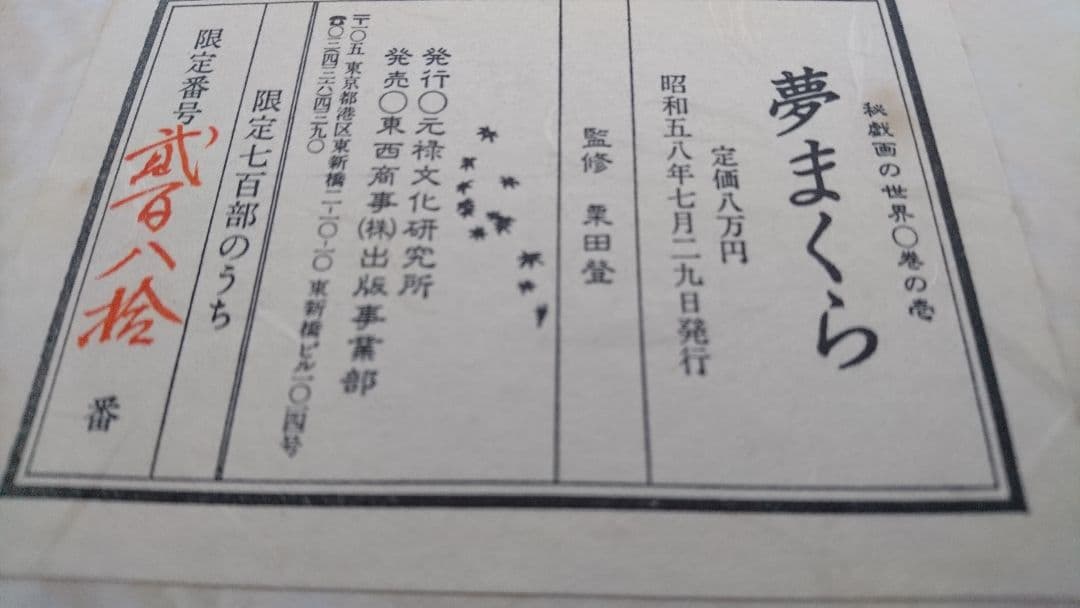 秘戯画の世界〇巻の壱
夢まくら
定価八万円
昭和五八年七月二九日発行
監修 栗田登
発行〇元禄文化研究所
発売〇東西商事(株)出版事業部
〒一〇五 東京都港区東新橋二-一〇-一〇 東新橋ビル一〇三四号
☎〇三(四三六)四三九〇
限定七百部のうち
限定番号 貳百八拾 番